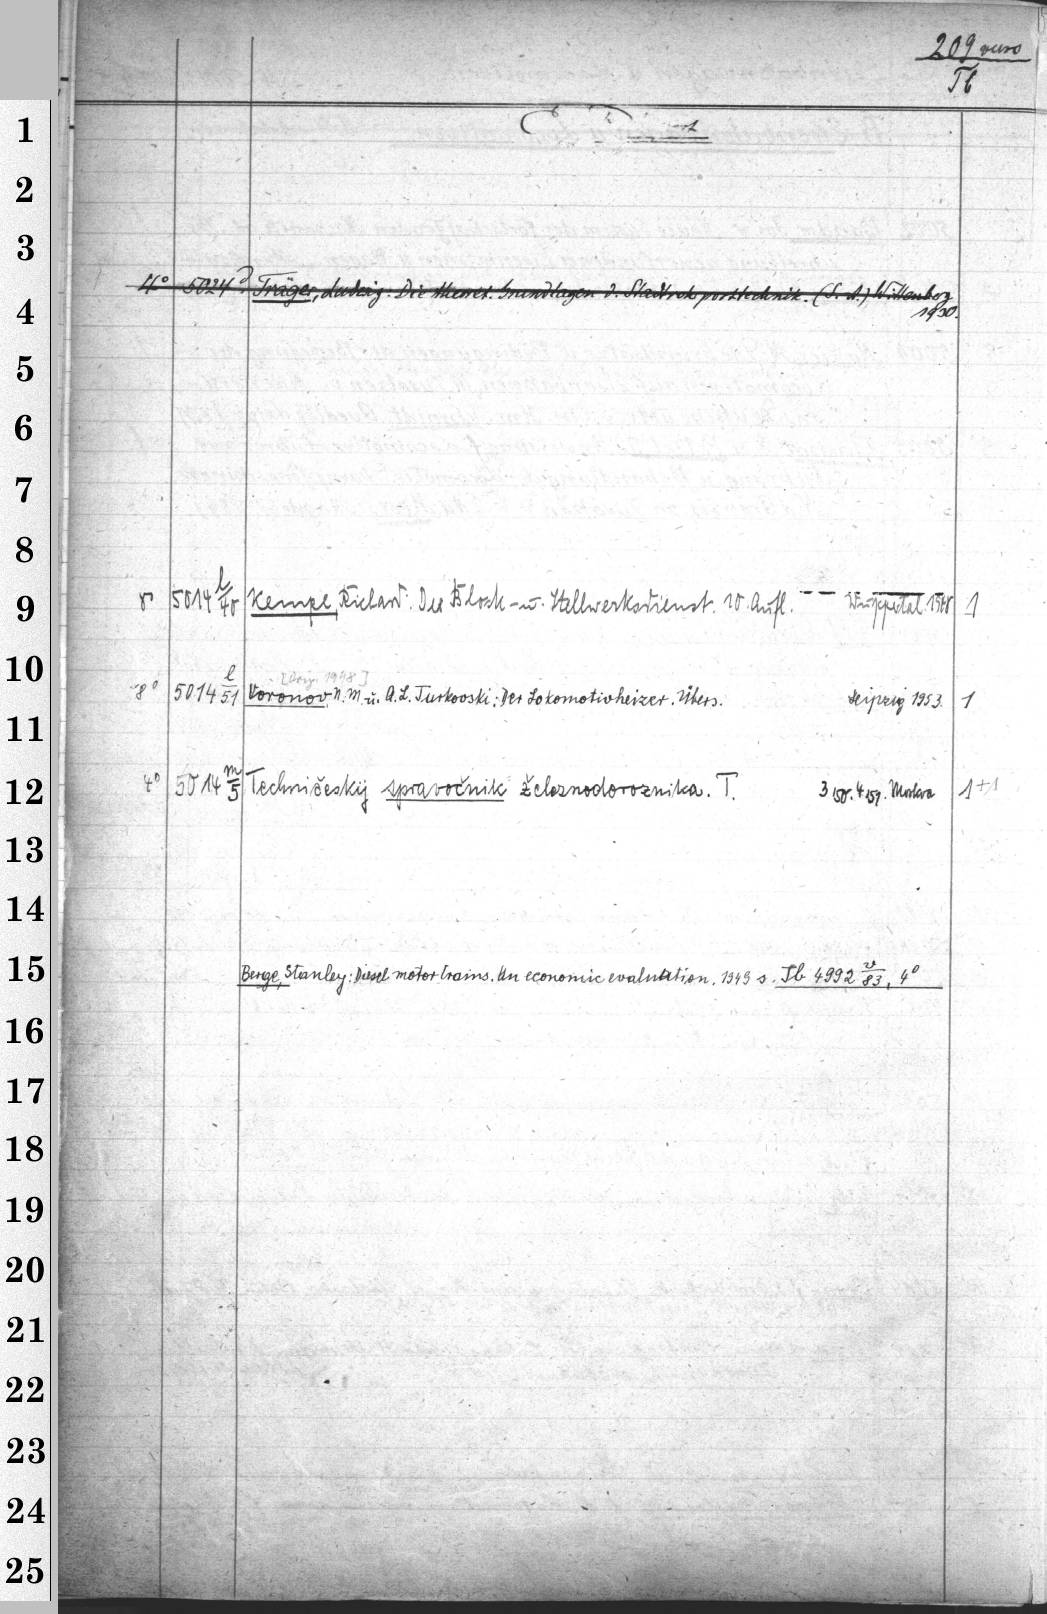 209 verso
Tb
4° 5024 Träger, Ludwig: Die theoret. Grundlagen d. Stadtrohrposttechnik. (S. A.) Wittenberg
1930.
1
2
3
4
5
6
7
8
9
10
11
12
13
14
15
16
17
18
19
20
21
22
23
24
25
8° 5014 l/40 Kempe, Richard. Der Block- u. Stellwerksdienst. 10. Aufl. — — Wuppertal. 1948 1
[Orig. 1948]
8° 5014 l/51 Voronov, N. M. u. A. L. Turkovski: Der Lokomotivheizer. Übers. Leipzig 1953. 1
4° 5014 m/5 Techničeskij spravočnik železnodorožnika. T. 3 . 4 . Moskva 1+1
Berge, Stanley: Diesel motor trains. An economic evalution. 1949 s. Tb 4992 v/83, 4°